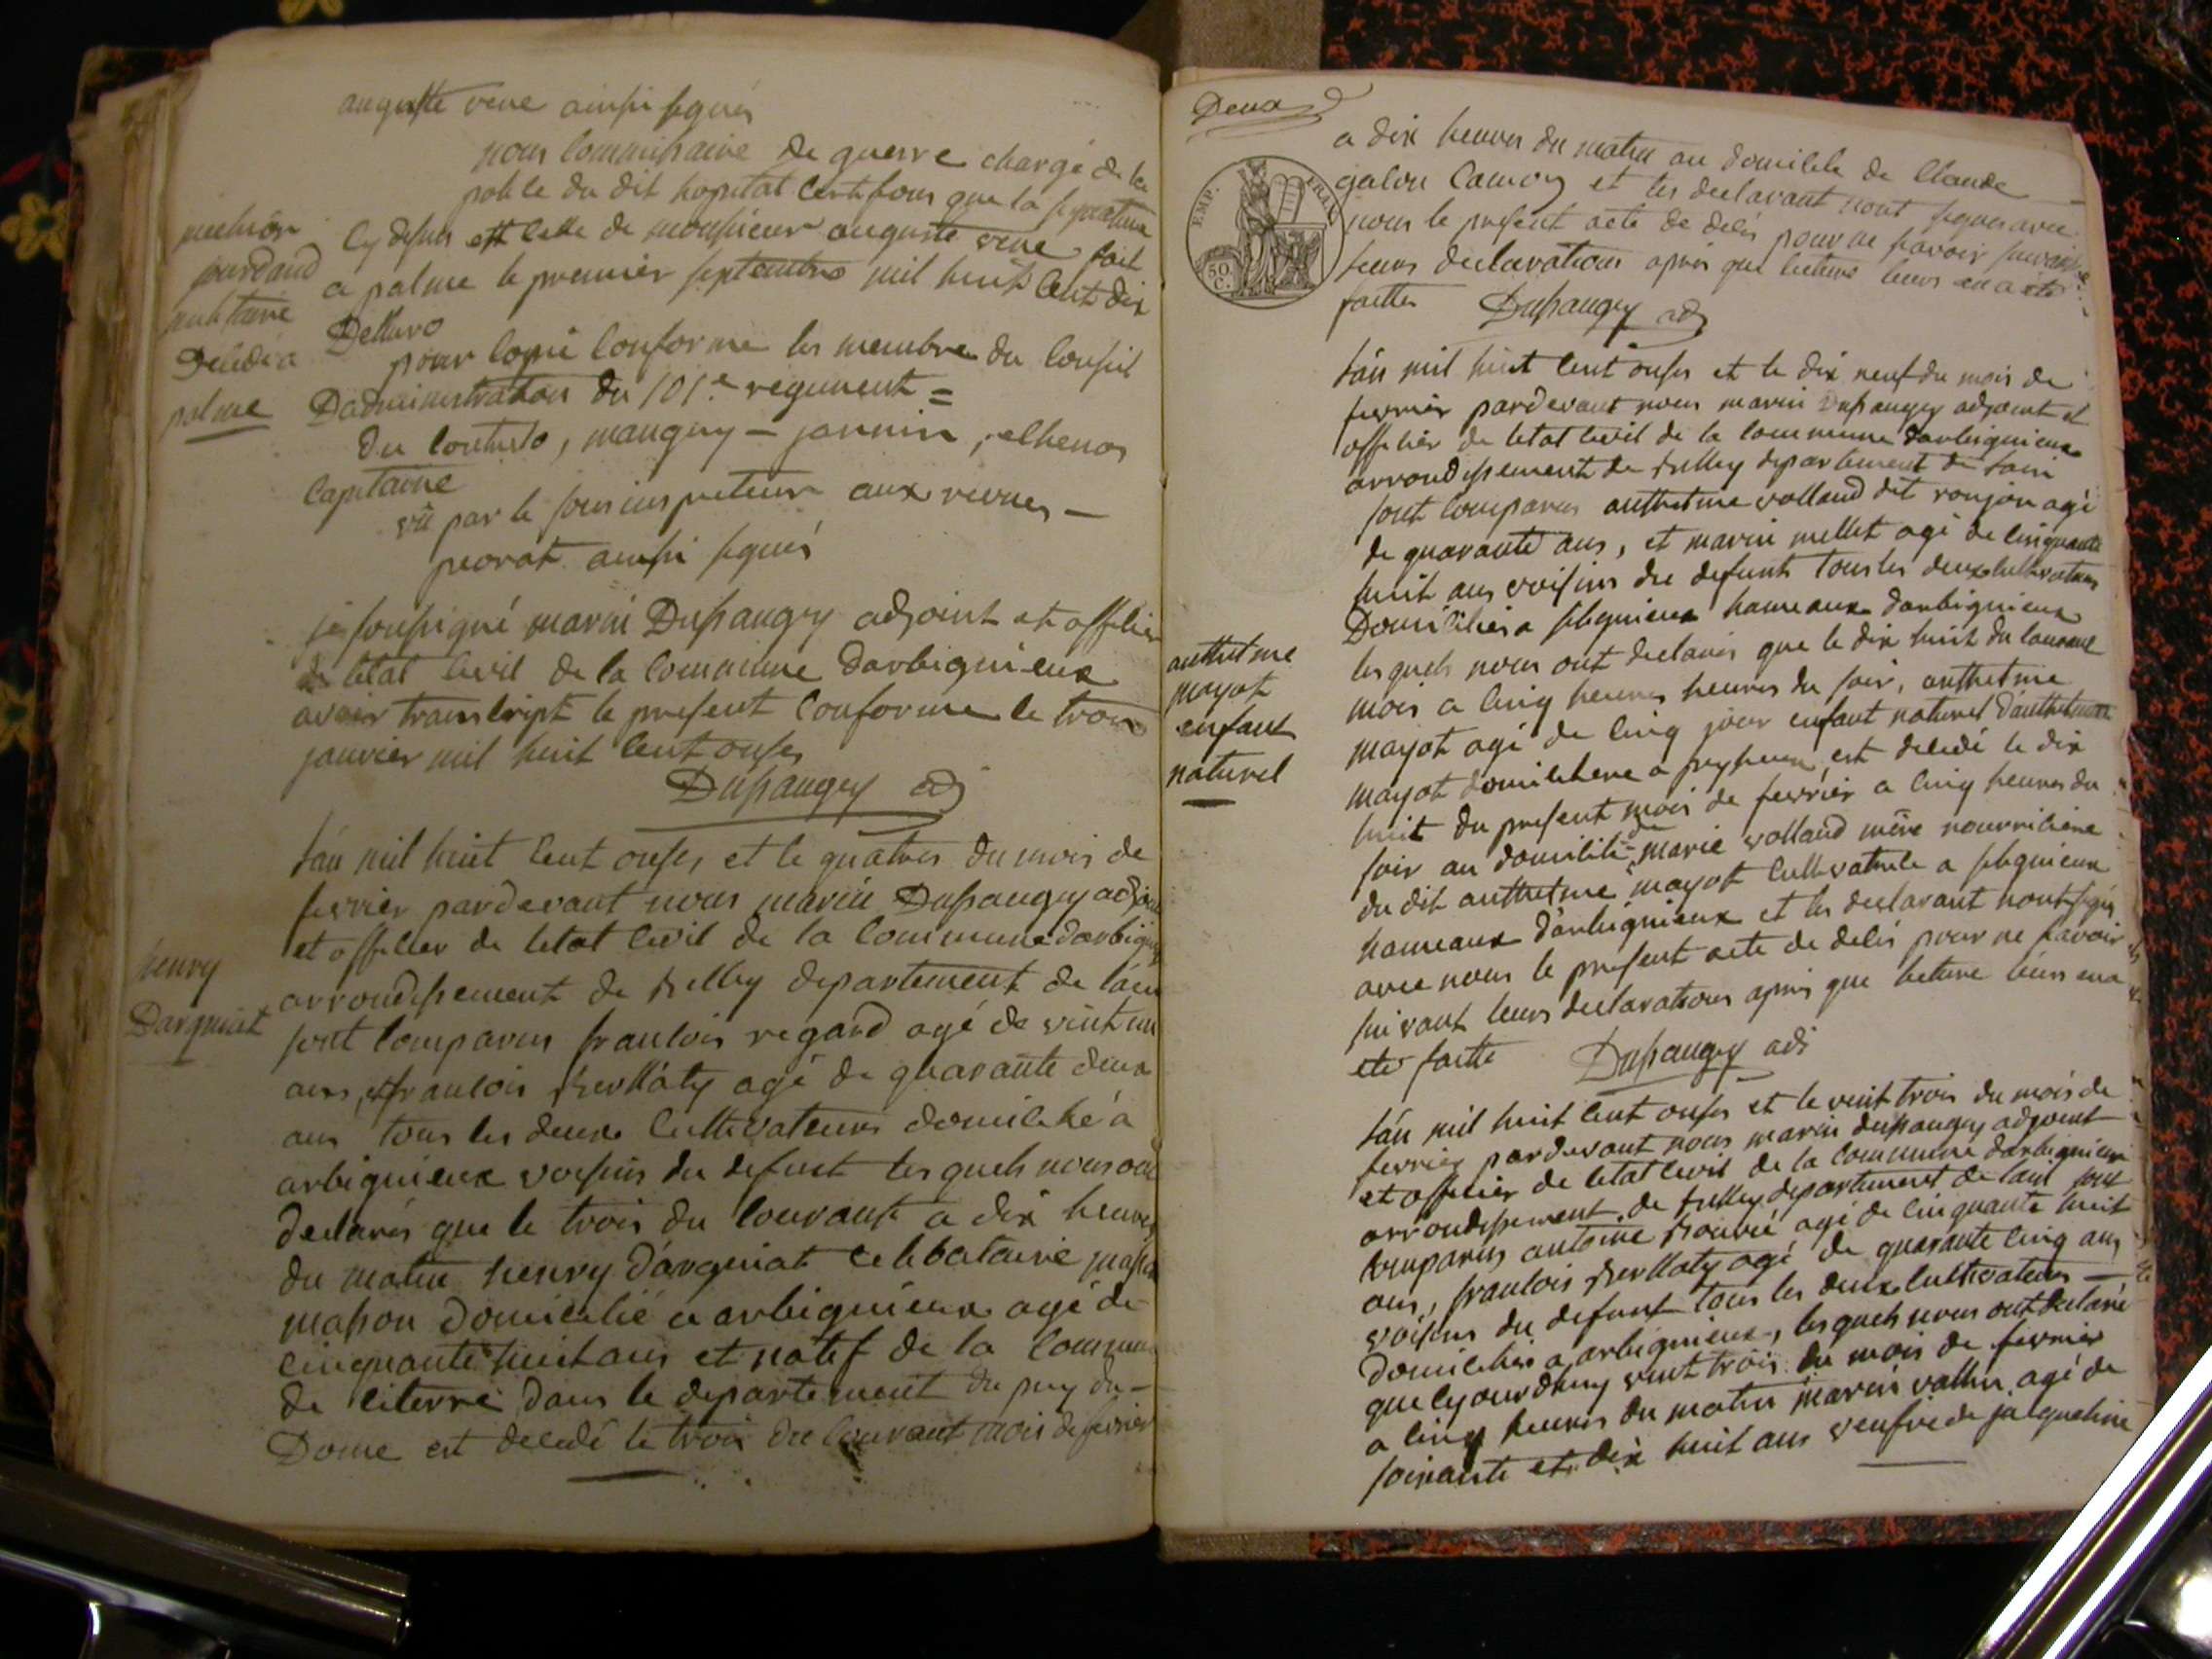 auguste vene ainsi signés
nous Commissaire de guerre chargé de la
police du dit hopital Certifions que la signature
Cy dessus est celle de monsieur auguste vene fait
a palme le premier septembre mil huit Cent dix
pour Copie Conforme les membres du Conseil
Dadministration du 101.e regiment =
mauguy - jannin,
Capitaine
vû par le sous inspecteur aux revues -
ainsi signés
jourdand
militaire
Decedé a
palme
je soussigné marin Dupraugey adjoint et officier
de letat Civil de la Commune darbignieux
avoir transcript le present Conforme le trois
janvier mil huit Cent onses
Dupraugey adj
henry
Dargniat
lán mil huit Cent onses et le quatres du mois de
fevrier pardevant nous marin Dupraugey adjoin
et officier de letat Civil de la Commune darbigni
arrondissement de Belley departement de láin
sont Comparus francois regard agé de vint un
ans, et francois Berllióty agé de quarante deux
ans tous les deux Cultivateurs domicilié a
arbignieux voisins du defunt les quels nous on
declarés que le trois du Courant a dix heures
du matin henry Dárgniat Celibataire
masson domicilié a arbignieux agé de
cinquante huit ans et natif de la Commune
de literre dans le departement du puy du -
Dome est decedé le trois du Courant mois de fevrier
Deux
EMP. FRAN.
50 C.
a dix heures du matin au domicile de Claude
galou Camoz et les declarant nont signes avec
nous le present acte de decés pour ne savoir suivant
leurs declarations aprés que lecture leurs en a été
faittes Dupraugey adj
lán mil huit Cent onses et le dix neuf du mois de
fevrier pardevant nous marin Dupraugey adjoint et
officier de letat Civil de la Commune darbignieux
arrondissement de Belley departement de lain
sont Comparus anthelme volland dit ronjon agé
de quarante ans, et marin mellet agé de Cinquante
huit ans voisins du defunt tous les deux Cultivateurs
Domiciliés a hameaux darbignieux
les quels nous ont declarés que le dix huit du Courant
mois a Cinq heures heures du soir, anthelme
mayot agé de Cinq jour enfant naturel dánthelme
mayot domiciliere a est decedé le dix
huit du present mois de fevrier a Cinq heures du
soir au domicile de marie volland mère nourriciere
du dit anthelme mayot Cultivatrice a
hameaux dárbignieux et les declarant nont signés
avec nous le present acte de decés pour ne savoir
suivant leurs declarations aprés que lecture leurs en a
été faitte Dupraugey adj
anthelme
mayot
enfant
naturel
lán mil huit Cent onses et le vint trois du mois de
fevrier pardevant nous marin dupraugey adjoint
et officier de letat Civil de la Commune darbignieux
arrondissement de Belley departement de lain sont
Comparus antoine agé de Cinquante huit
ans, francois Berllioty agé de quarante Cinq ans
voisins du defunt tous les deux Cultivateurs -
domiciliés a arbignieux, les quels nous ont declaré
que cejourdhuy vint trois du mois de fevrier
a Cinq heures du matin marin vallin agé de
soixante et dix huit ans veufve de jacqueline